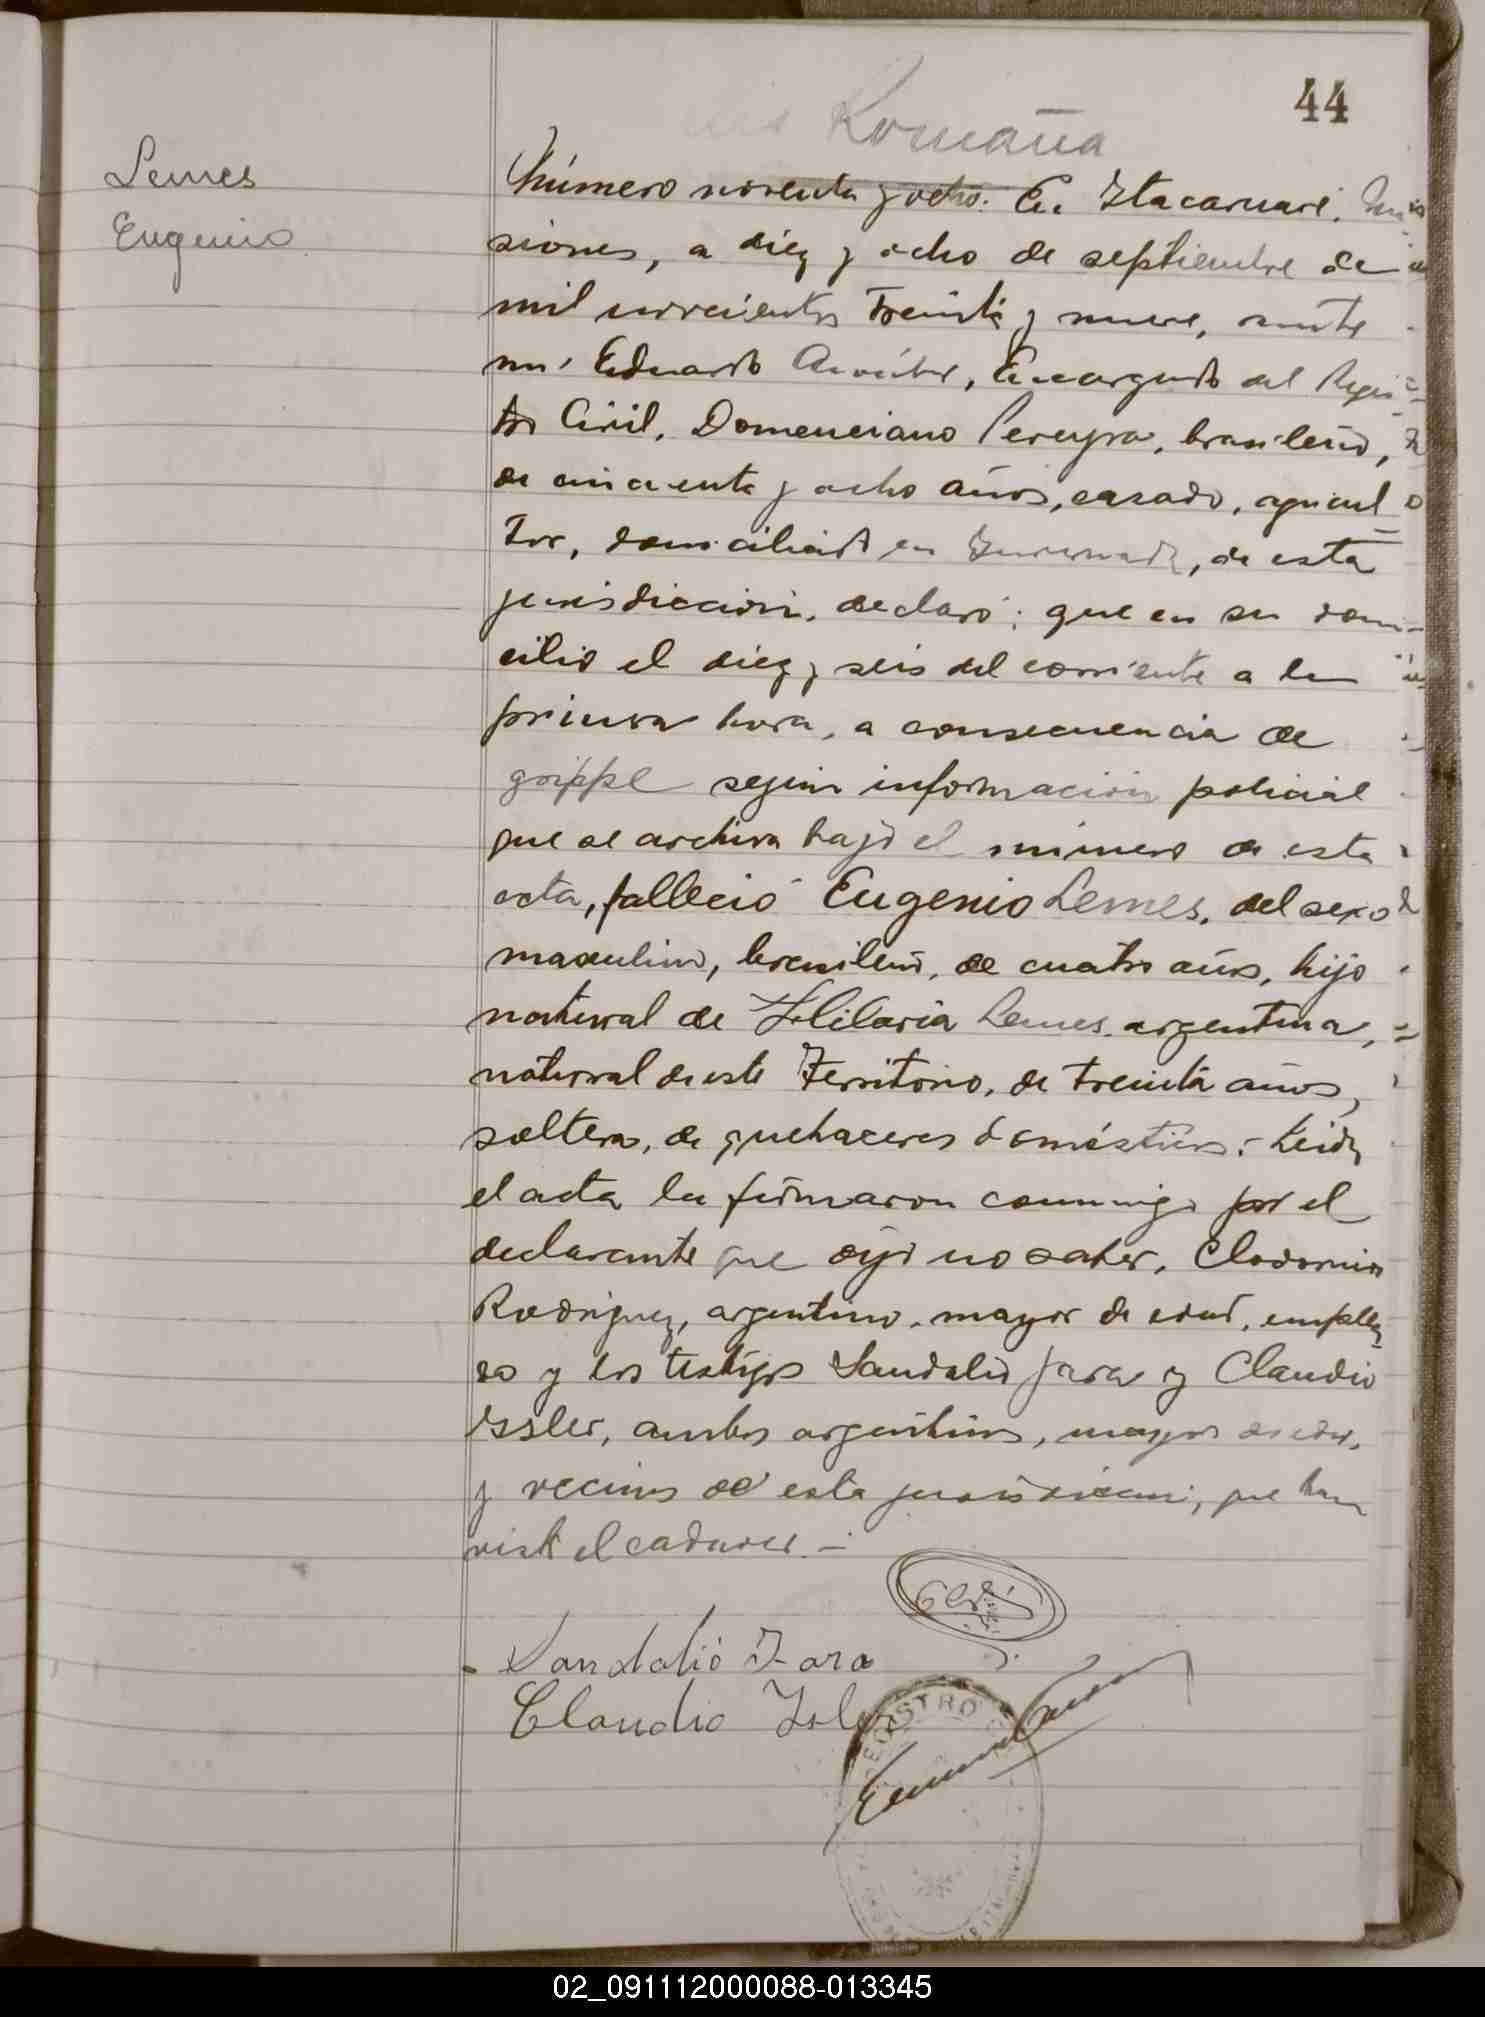 44
Romaña
Lemes
Eugenio
Número noventa y ocho. En Itacaruaré. Mi
siones, a diez y ocho de septiembre de
mil novecientos treinta y nueve, ante
mi Eduardo, Encargado del Regis
tro Civil, Domenciano Pereyra, brasileño,
de cincuenta y ocho años, casado, agricul
tor, domiciliado en, de esta
jurisdicción, declaró: que en su domi
cilio el diez y seis del corriente a la
primera hora, a consecuencia de
grippe según información policial
que se archiva bajo el número de esta
acta, falleció Eugenio Lemes, del sexo
masculino, brasileño, de cuatro años, hijo
natural de Hilaria Lemes, argentina,
natural de este Territorio, de treinta años,
soltera, de quehaceres domésticos.- Leida
el acta la firmaron conmigo por el
declarante que dijo no saber, Clodomiro
Rodríguez, argentino, mayor de edad, emplea
do y los testigos Sandalio Jara y Claudio
Issler, ambos argentinos, mayores de edad,
y vecinos de esta jurisdicción, que han
visto el cadáver.-
Sandalio Jara
Claudio
REGISTRO
02_091112000088-013345